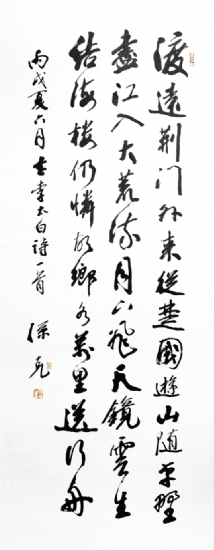 渡遠荆门外来從楚國遊山随平野
盡江入大荒流月下飛天鏡雲生
结海楼仍憐故鄉水萬里送行舟
丙戌夏六月書李太白诗一首